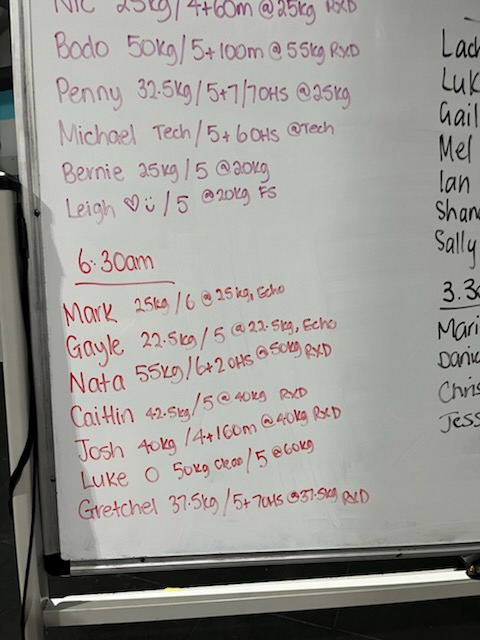 Nic 25kg/4+60m @25kg RXD
Bodo 50kg/5+100m @ 55kg RXD
Penny 32.5kg/5+7/70HS @25kg
Michael Tech/5+60HS @Tech
Bernie 25kg/5 @20kg
Leigh ♡ü/5 @20kg FS
6:30am
Mark 25kg/6 @25kg, Echo
Gayle 22.5kg/5 @22.5kg, Echo
Nata 55kg/6+20HS @50kg RXD
Caitlin 42.5kg/5 @40kg RXD
Josh 40kg/4+160m @40kg RXD
Luke O 50kg clean/5 @60kg
Gretchel 37.5kg/5+70HS @37.5kg RXD
Lach
Luk
Gail
Mel
Ian
Shan
Sally
3.3
Mari
Danie
Chris
Jess